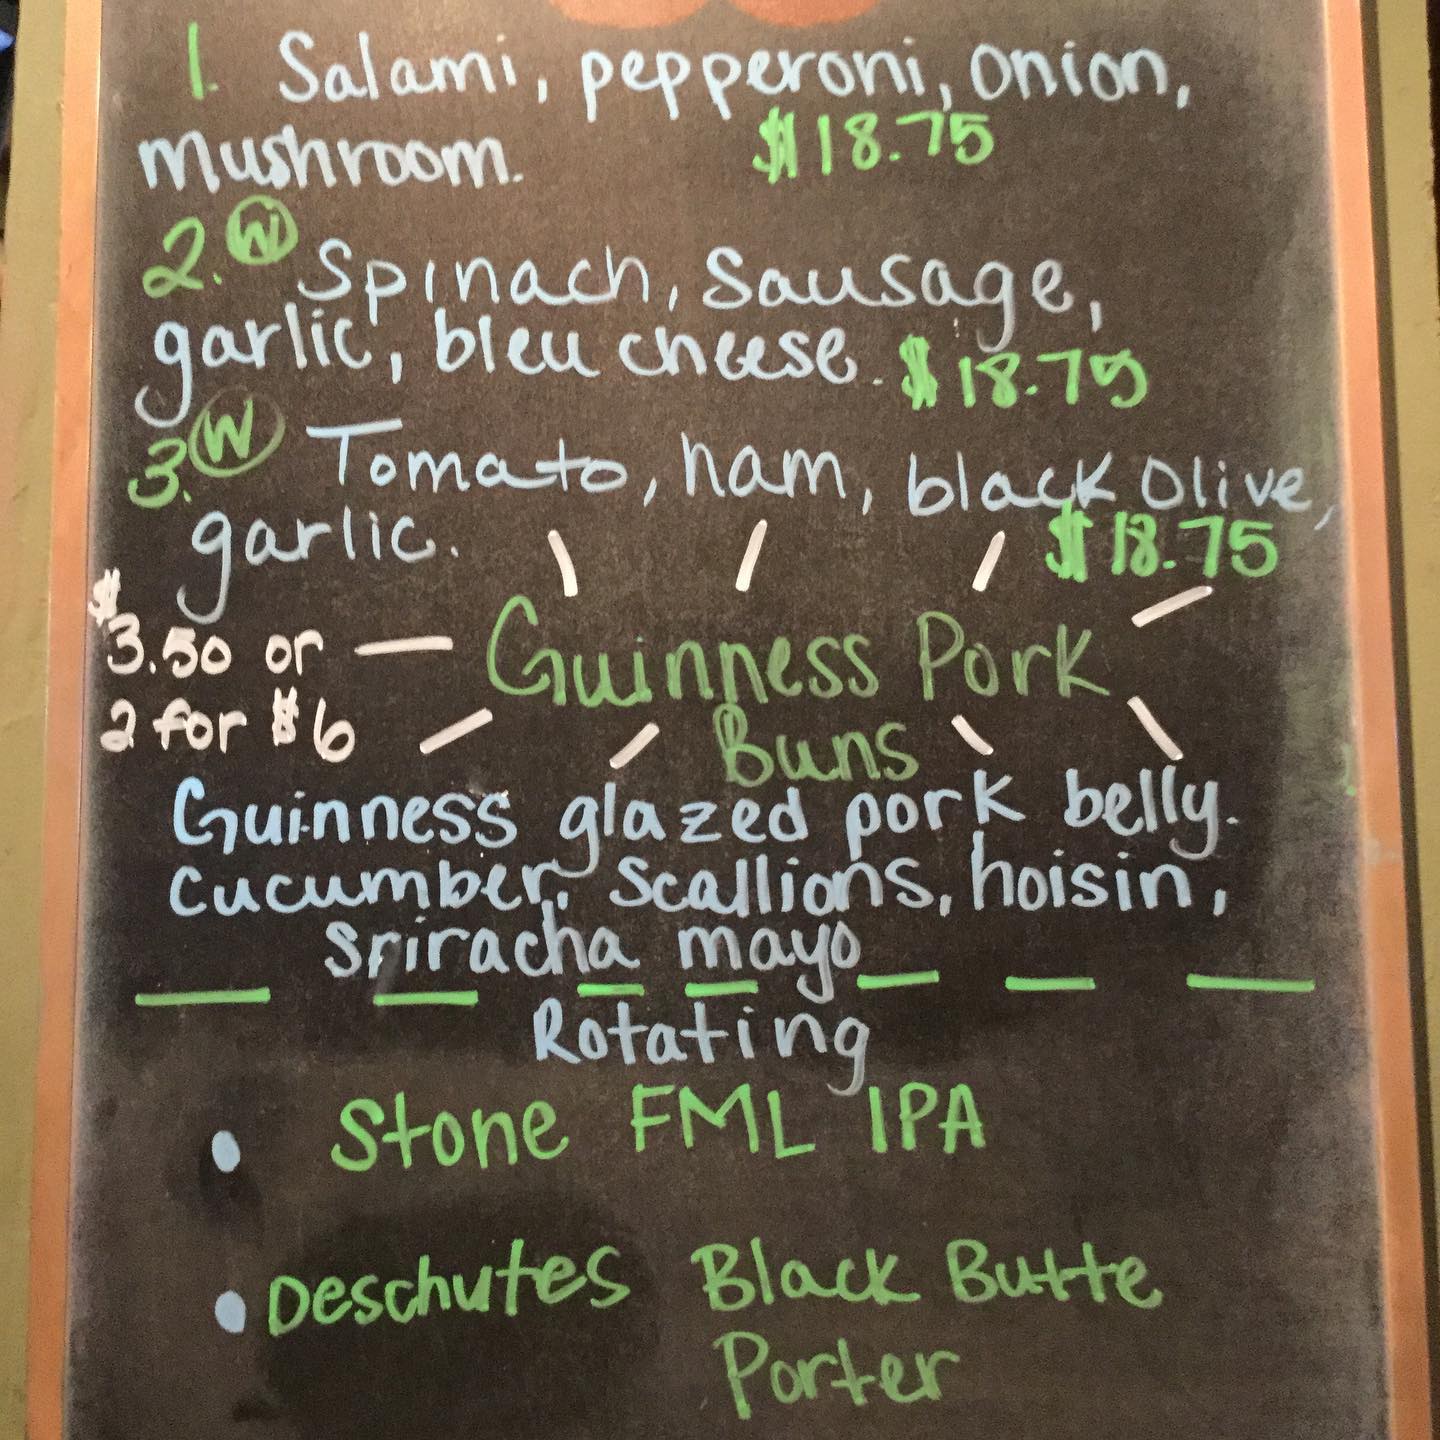 1. Salami, pepperoni, onion,
mushroom. $18.75
2. W Spinach, Sausage,
garlic, bleu cheese. $18.75
3. W Tomato, ham, black Olive,
garlic. $18.75
$3.50 or
2 for $6
Guinness Pork
Buns
Guinness glazed pork belly.
Cucumber, Scallions, hoisin,
sriracha mayo
Rotating
• Stone FML IPA
• Deschutes Black Butte
Porter